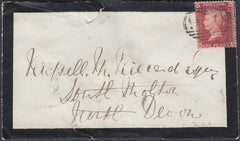 Russell M. Riccard Esqre
South Molton
North Devon